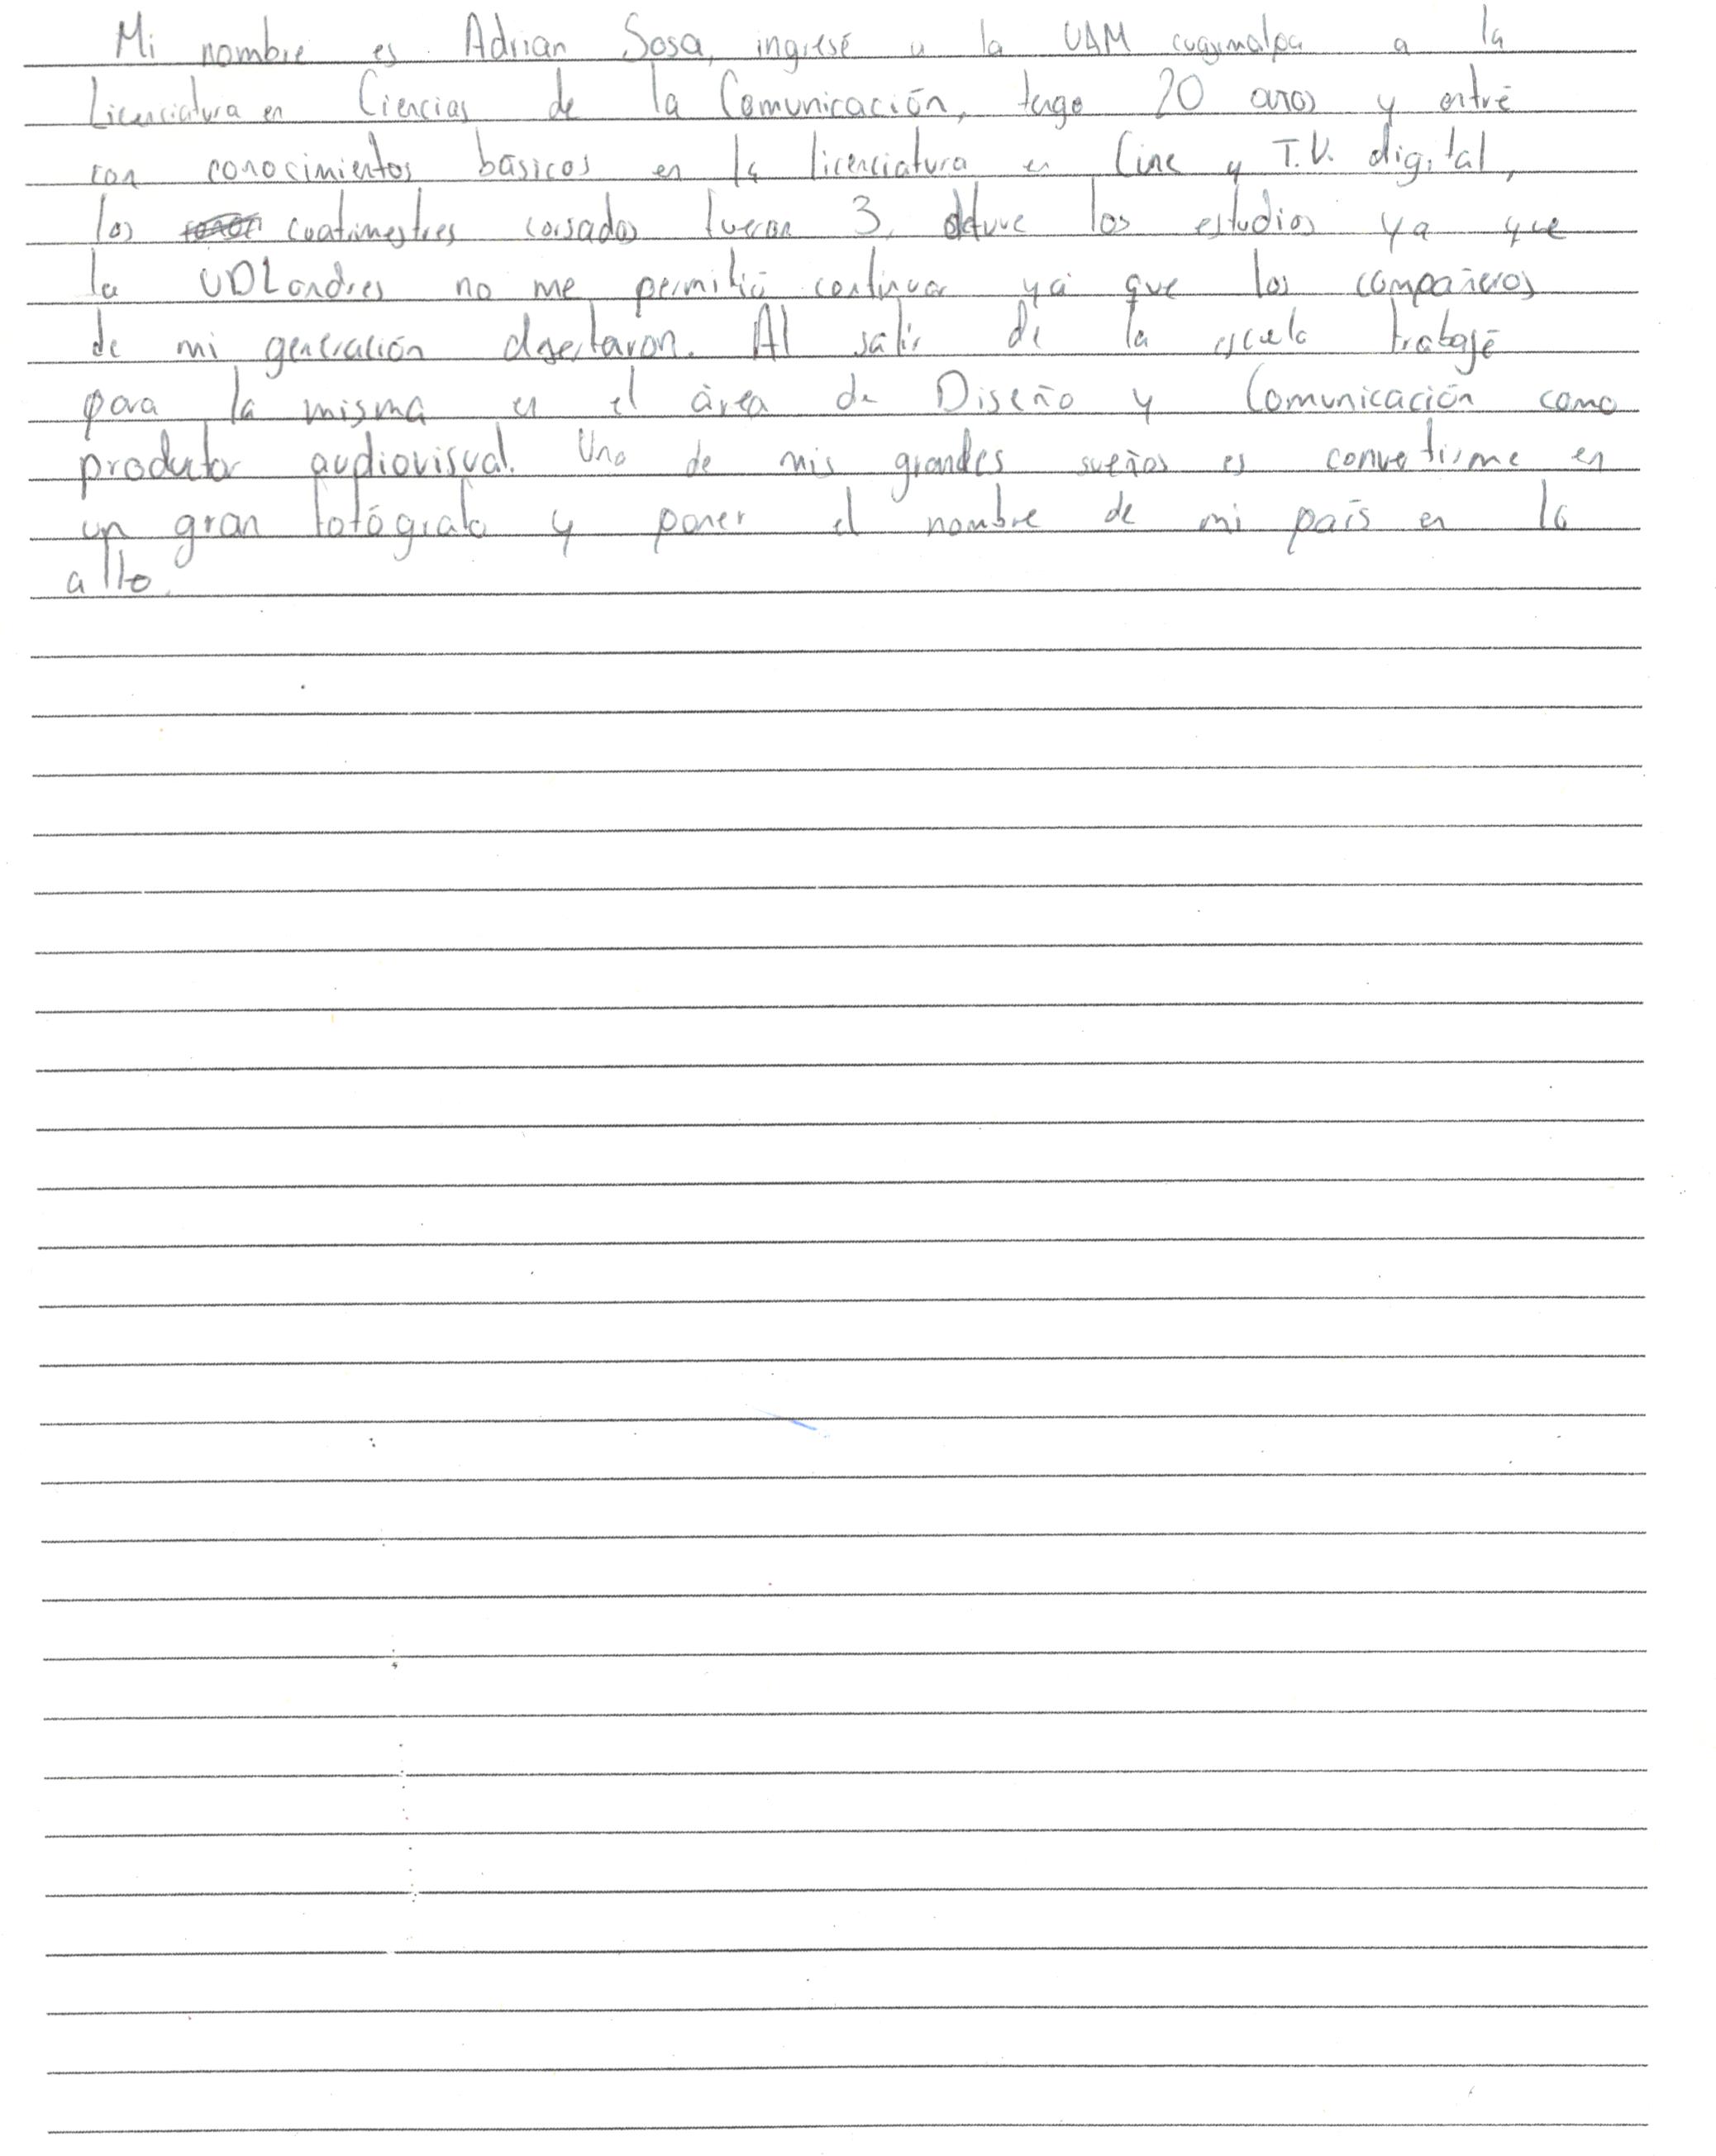 Mi nombre es Adrian Sosa, ingresé a la UAM cuajimalpa a la
Licenciatura en Ciencias de la Comunicación, tengo 20 años y entré
con conocimientos básicos en la licenciatura en Cine y T.V. digital,
los cuatrimestres cursados fueron 3, detuve los estudios ya que
la UDLondres no me permitió continuar ya que los compañeros
de mi generación desertaron. Al salir de la escuela trabajé
para la misma en el área de Diseño y Comunicación como
productor audiovisual. Uno de mis grandes sueños es convertirme en
un gran fotógrafo y poner el nombre de mi país en lo
alto.